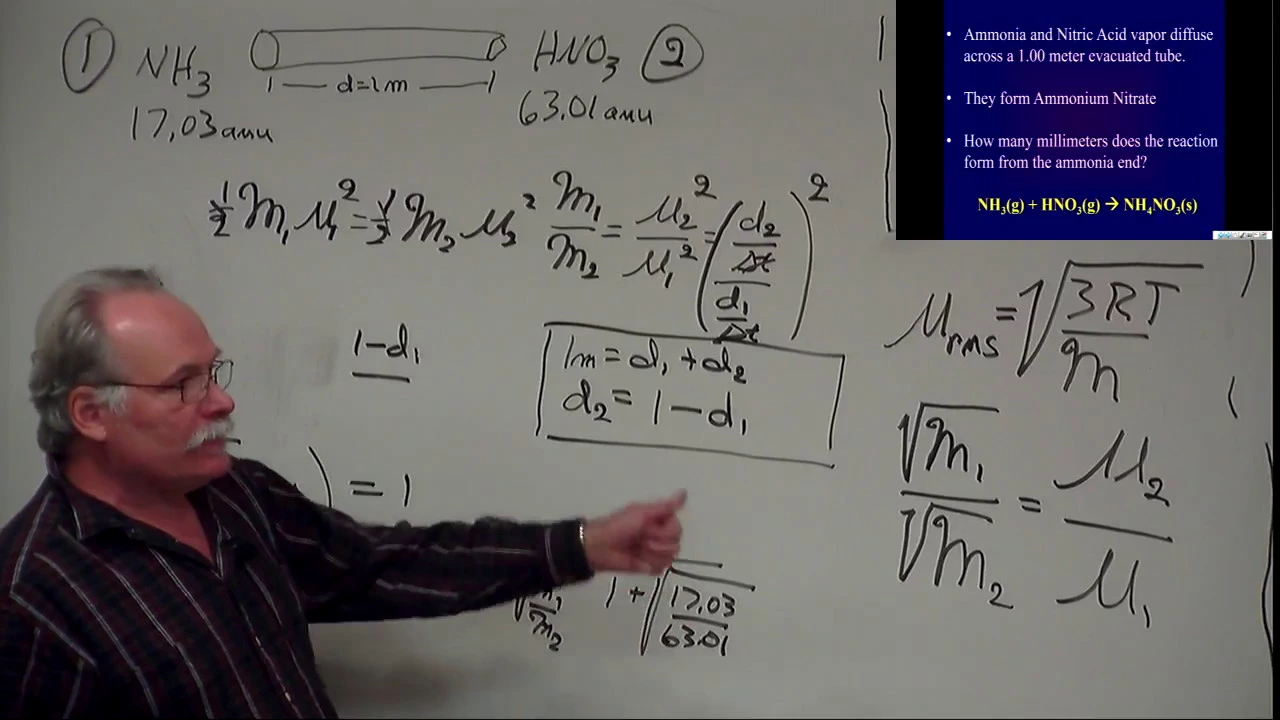 ① NH₃
HNO₃ ②
d=1m
17.03amu
63.01amu
½ m₁ μ₁² = ½ m₂ μ₂²
m₁/m₂ = μ₂²/μ₁² = ((d₂/Δt)/(d₁/Δt))²
1-d₁
1m = d₁ + d₂
d₂ = 1 - d₁
) = 1
1 + √(17.03/63.01)
μrms = √(3RT/m)
√m₁/√m₂ = μ₂/μ₁
• Ammonia and Nitric Acid vapor diffuse
across a 1.00 meter evacuated tube.
• They form Ammonium Nitrate
• How many millimeters does the reaction
form from the ammonia end?
NH₃(g) + HNO₃(g) → NH₄NO₃(s)